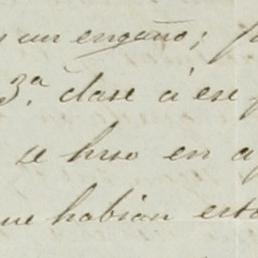 un engaño;
3ª clase á ese
se hiso en
que habian